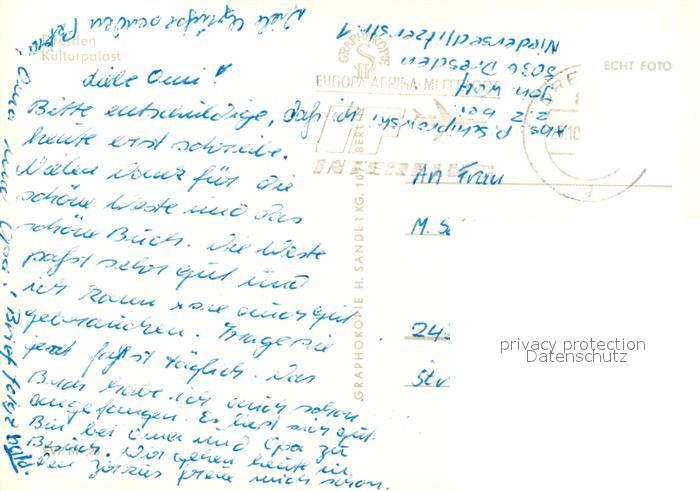 Dresden
Kulturpalast
Liebe Omi!
Bitte entschuldige, daß ich
heute erst schreibe.
Vielen Dank für die
schöne Weste und das
schöne Buch. Die Weste
paßt sehr gut und
ich kann sie auch gut
gebrauchen. Trage sie
jetzt fast täglich. Das
Buch habe ich auch schon
angefangen. Es liest sich gut.
Bin bei Oma und Opa zu
Besuch. Wir gehen heute in
den Zirkus freue mich schon.
Oma und Opa! Brief folgt bald
Viele Grüße senden
Abs.
z.Z. bei
von
8036 Dresden
Niedersedlitzerstr. 1
GRAPHOKOPIE
EUROPA · AFRIKA · MITTELOST
IF
INTERFLUG
ECHT FOTO
GRAPHOKOPIE H. SANDER KG, 1071 BERLIN
An Frau
M.
privacy protection
Datenschutz